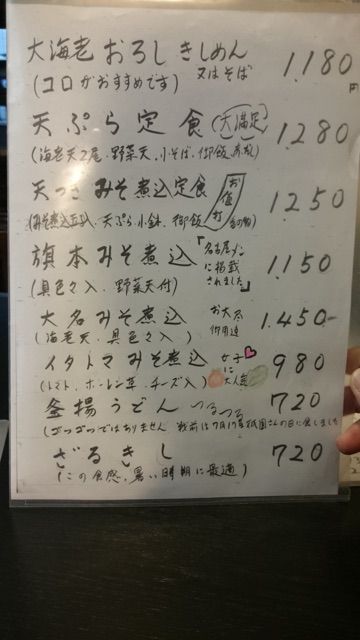 大海老おろしきしめん 又はそば 1,180円
(コロがおすすめです)
天ぷら定食 大満足 1,280
(海老天2尾、野菜天、小そば、御飯、赤だし)
天つきみそ煮込定食 お値打 1,250
天ぷら、小鉢、御飯
旗本みそ煮込 「名古屋メシに掲載されました」 1,150
(具色々入、野菜天付)
大名みそ煮込 お大名御用達 1,450-
(海老天、具色々入)
イタトマみそ煮込 女子に大人気 980
(トマト、ホーレン草、チーズ入)
釜揚うどん つるつる 720
ではありません 戦前は7月17日祇園さんの日に食しました
ざるきし 720
(この食感、暑い時期に最適)